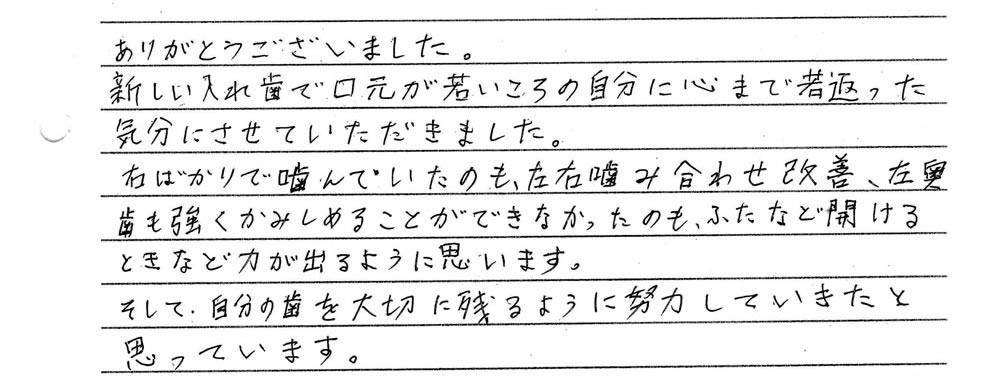 ありがとうございました。
新しい入れ歯で口元が若いころの自分に心まで若返った
気分にさせていただきました。
右ばかりで噛んでいたのも、左右噛み合わせ改善、左奥
歯も強くかみしめることができなかったのも、ふたなど開ける
ときなど力が出るように思います。
そして、自分の歯を大切に残るように努力していきたと
思っています。